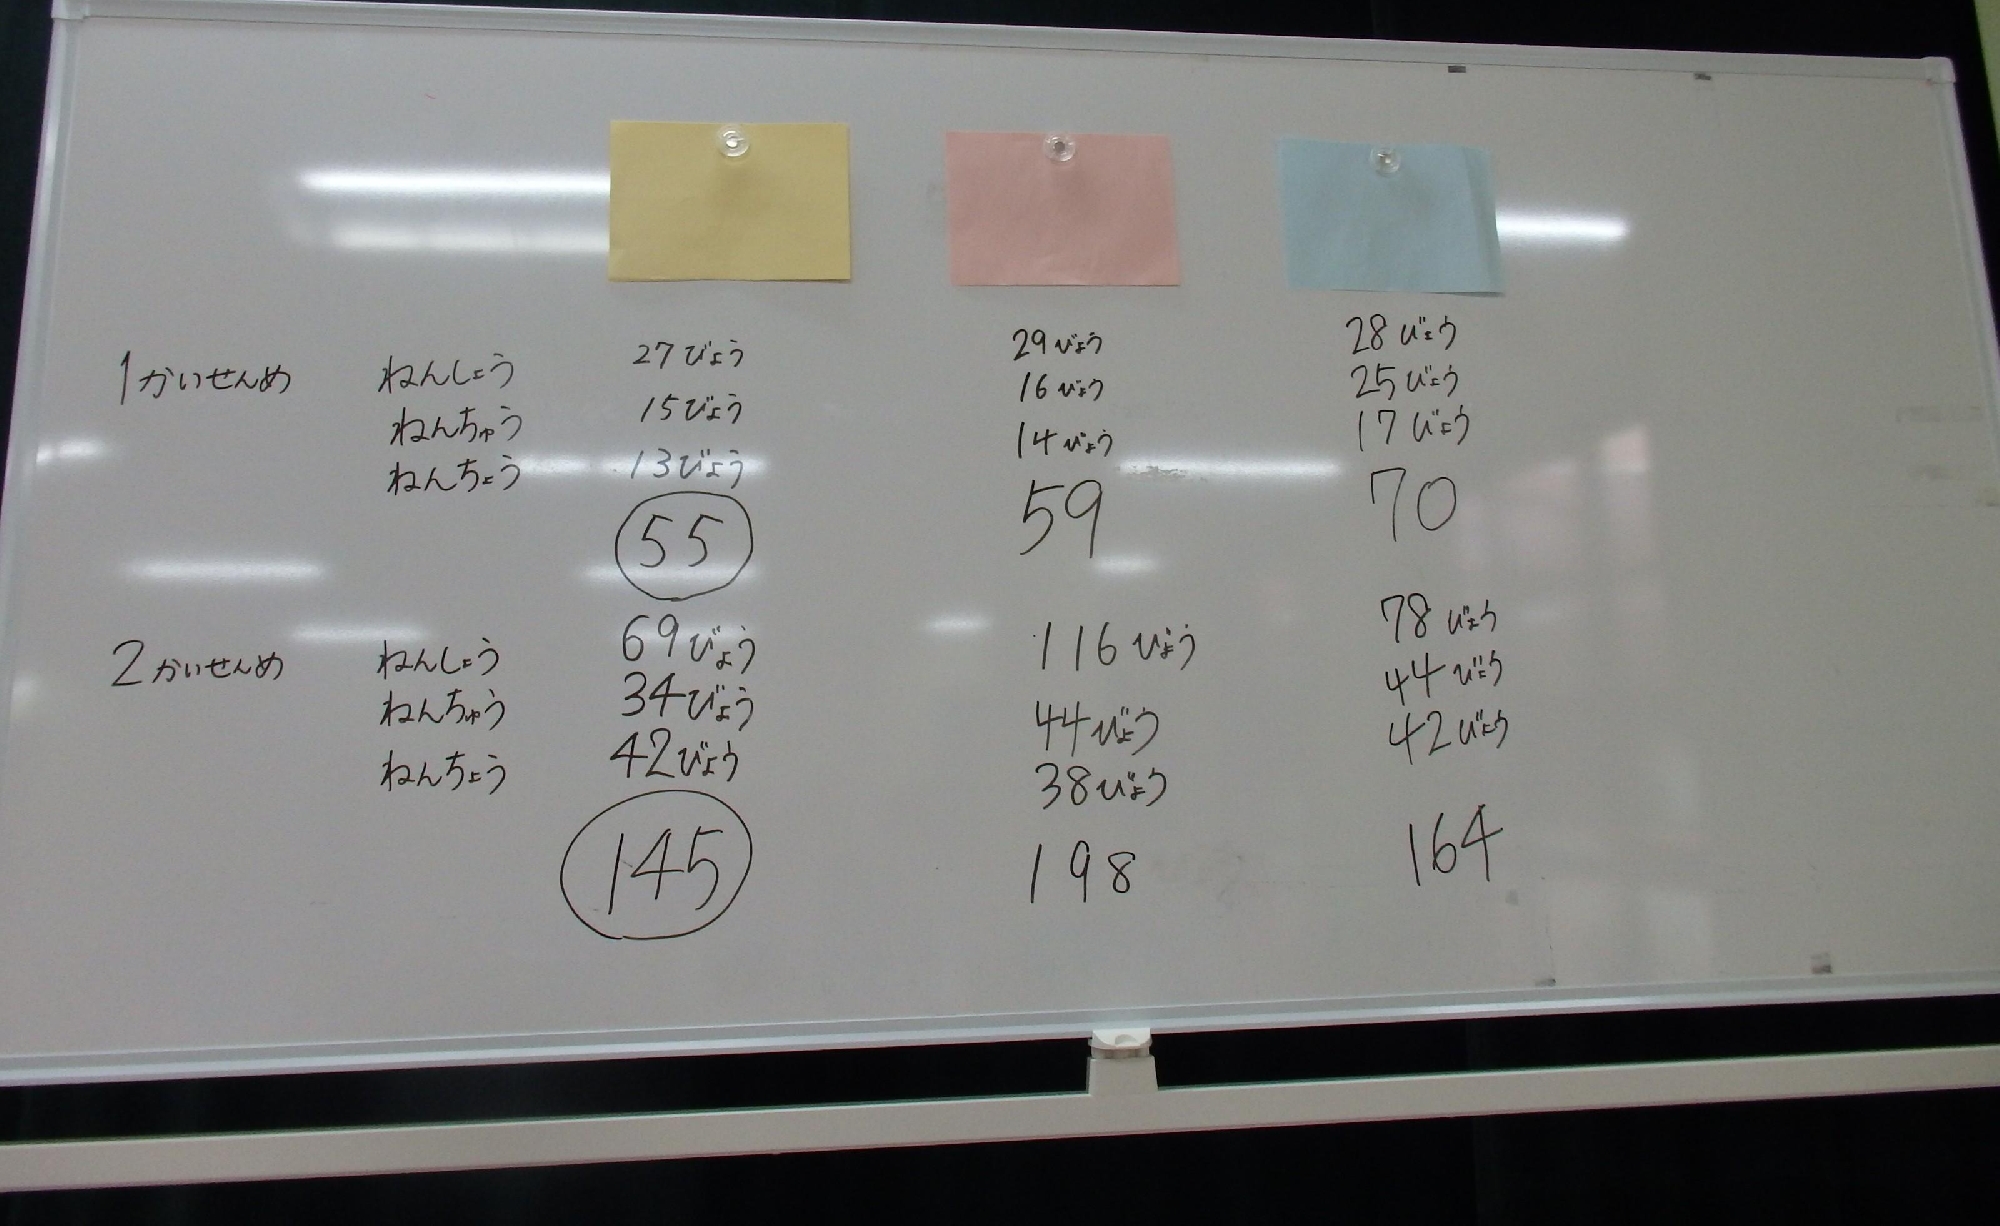 1かいせんめ ねんしょう 27びょう 29びょう 28びょう
ねんちゅう 15びょう 16びょう 25びょう
ねんちょう 13びょう 14びょう 17びょう
55 59 70
2かいせんめ ねんしょう 69びょう 116びょう 78びょう
ねんちゅう 34びょう 44びょう 44びょう
ねんちょう 42びょう 38びょう 42びょう
145 198 164